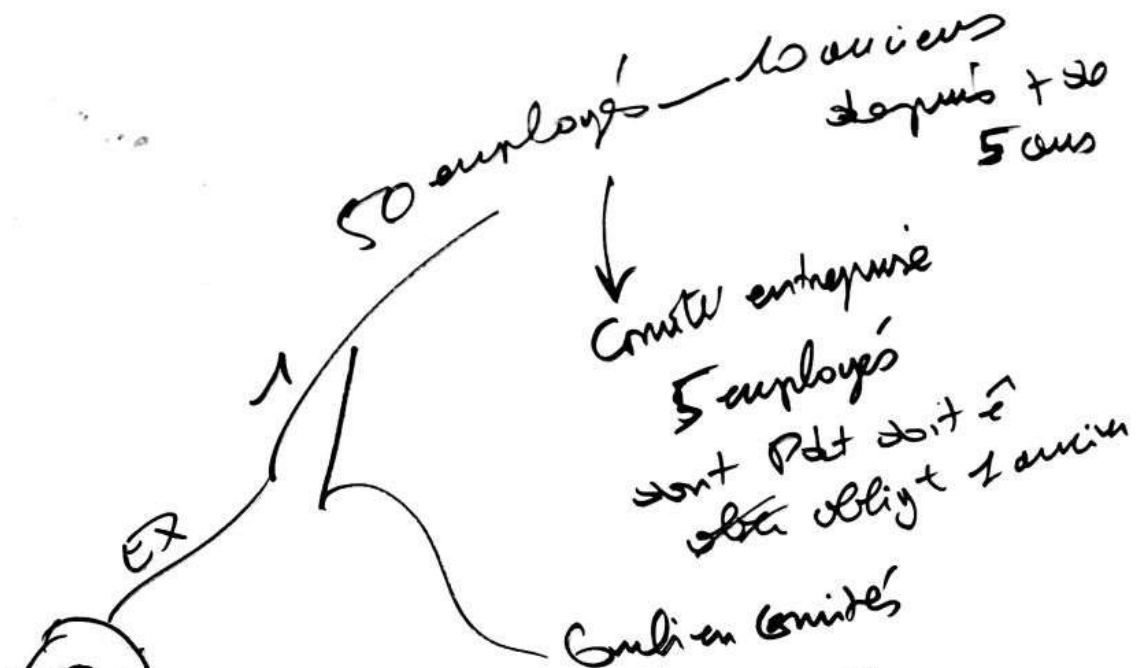 50 employés — 10 anciens
depuis + de
5 ans
Comité entreprise
5 employés
dont Pdt doit ê
obligt 1 ancien
1
EX
Combien comités